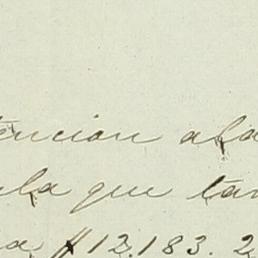 tencion a la
la que tan
a $12,183. 2